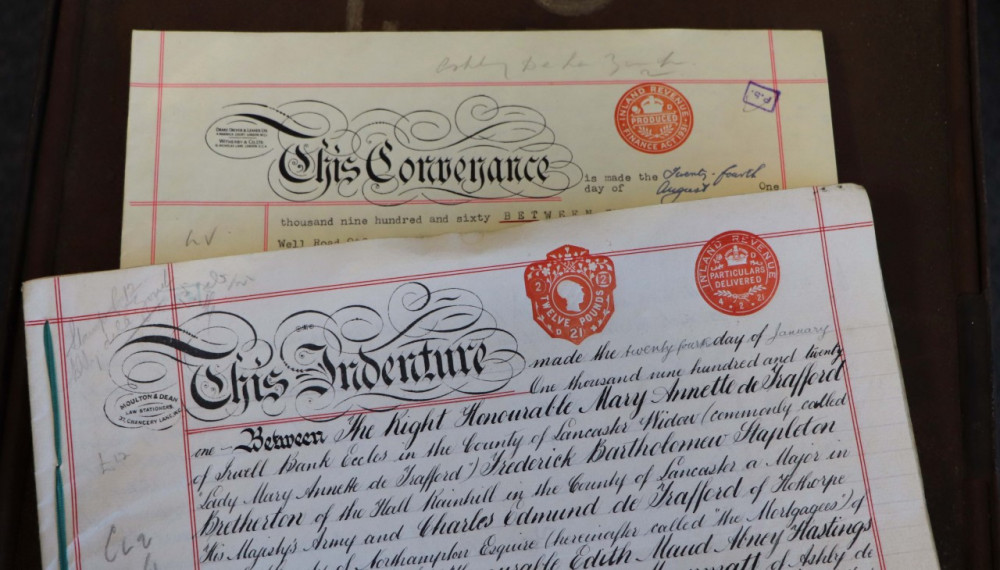 Ashby de la Zouch
INLAND REVENUE
PRODUCED
FINANCE ACT 1931
P.D.
This Conveyance is made the Twenty-fourth
day of August One
thousand nine hundred and sixty BETWEEN
Well Road
INLAND REVENUE
PARTICULARS
DELIVERED
TWELVE POUNDS
MOULTON & DEAN
LAW STATIONERS
CHANCERY LANE, W.C.
This Indenture made the twenty fourth day of January
One thousand nine hundred and twenty
one Between The Right Honourable Mary Annette de Trafford
of Irwell Bank Eccles in the County of Lancaster Widow (commonly called
"Lady Mary Annette de Trafford") Frederick Bartholomew Stapleton
Bretherton of the Hall Rainhill in the County of Lancaster a Major in
His Majesty's Army and Charles Edmund de Trafford of Hothorpe
of Northampton Esquire (hereinafter called "the Mortgagees") of
Edith Maud Abney Hastings
of Ashby de